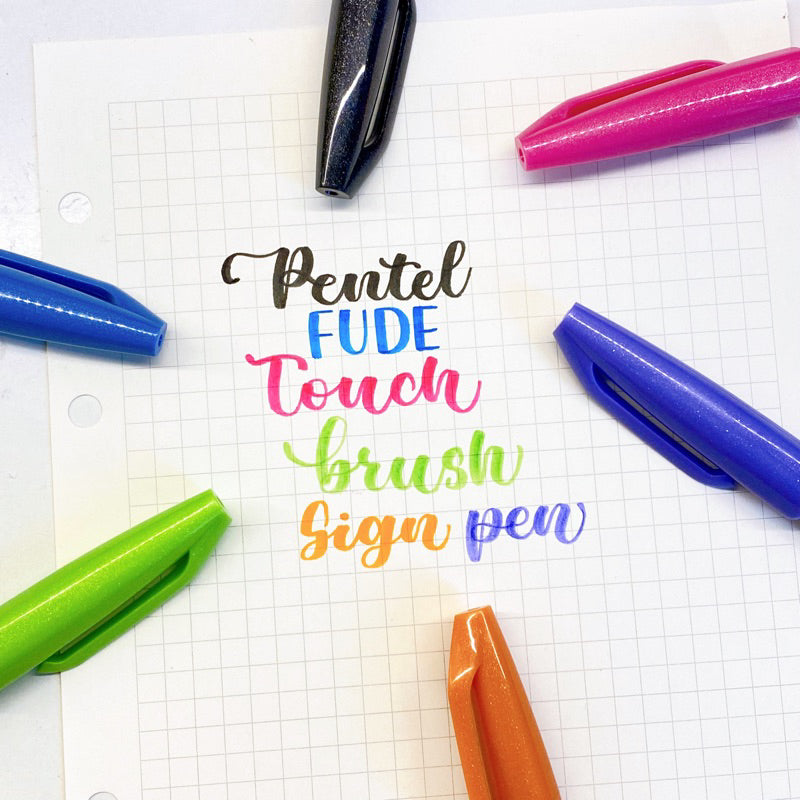 Pentel
FUDE
Touch
brush
Sign pen